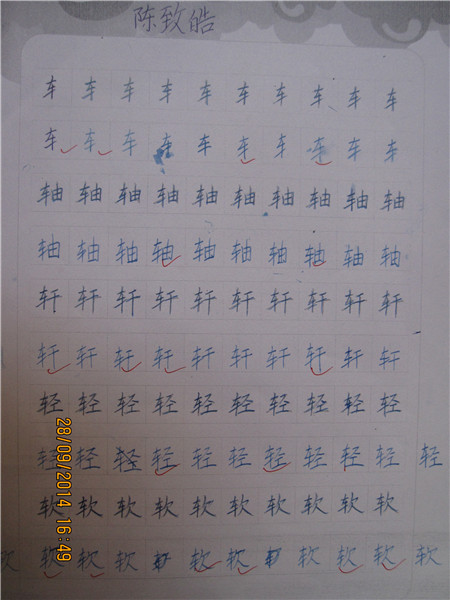 陈致皓
车 车 车 车 车 车 车 车 车 车
车 车 车 车 车 车 车 车 车 车
轴 轴 轴 轴 轴 轴 轴 轴 轴 轴
轴 轴 轴 轴 轴 轴 轴 轴 轴 轴
轩 轩 轩 轩 轩 轩 轩 轩 轩 轩
轩 轩 轩 轩 轩 轩 轩 轩 轩 轩
轻 轻 轻 轻 轻 轻 轻 轻 轻 轻
轻 轻 轻 轻 轻 轻 轻 轻 轻 轻 轻
软 软 软 软 软 软 软 软 软 软
软 软 软 软 软 软 软 软 软 软
28/09/2014 16:49